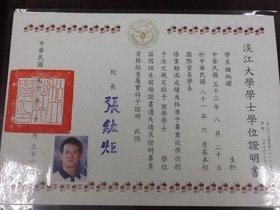 淡江大學學士學位證明書
學生鍾炳耀
生於
中華民國五十三年八月二十日
於中華民國八十一年六月在本校
國際貿易學系
修業期滿成績及格准予畢業依學位授
予法之規定授予商學學士學位
茲因該生前領證書遺失請求證明畢業
資格經查屬實特予證明 此證
校長 張紘炬
中華民國